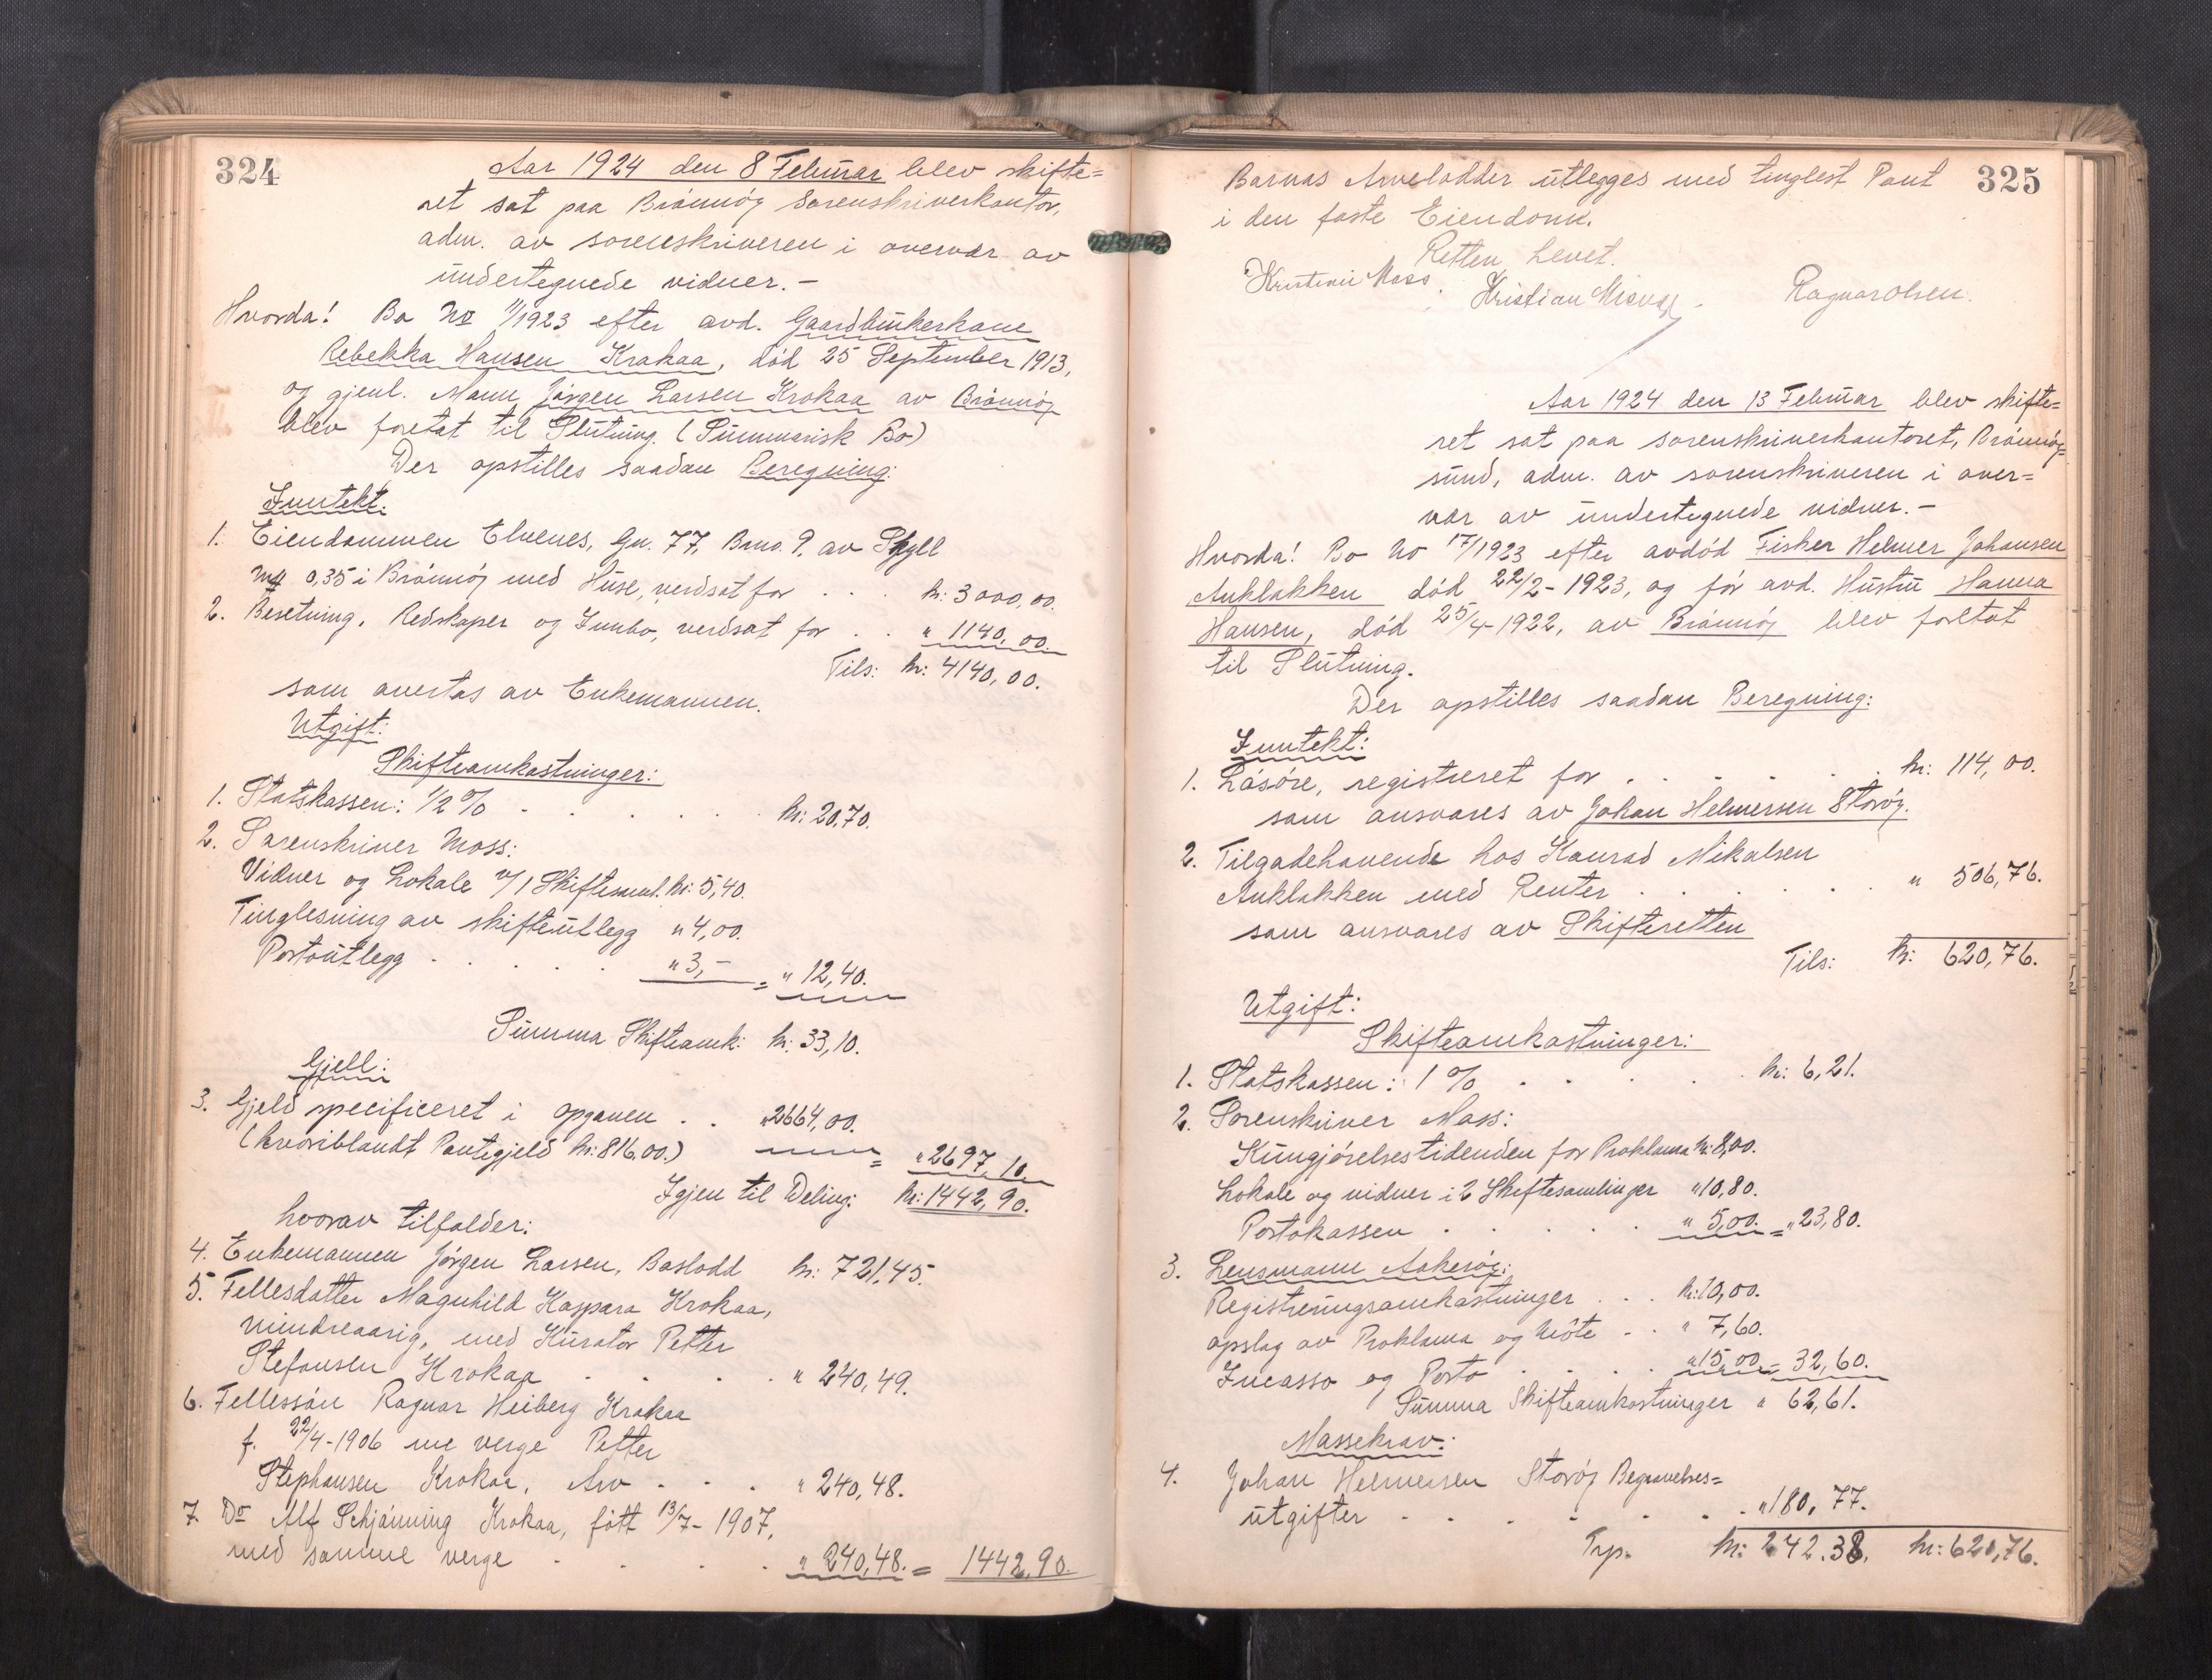 324
Aar 1924 den 8 Februar blev skifte=
ret sat paa Brønnøy Sorenskriverkontor,
adm. av sorenskriveren i overvær av
undertegnede vidner. -
Hvorda! Bo No 1/1923 efter avd. Gaardbrukerkone
Rebekka Hansen Krokaa, död 25 September 1913,
og gjenl. Mann Jörgen Larsen Krokaa av Brönnöy
blev foretat til Slutning. (Summarisk Bo)
Der opstilles saadan Beregning:
Inntekt:
1. Eiendommen Elvenes, Gn. 77, Brno. 9. av Skyll
mk 0,35 i Brönnöy med Huse, verdsat for . . . kr: 3000,00.
2. Besetning, Redskaper og Innbo, verdsat for . . " 1140,00.
Tils: kr: 4140,00.
som overtas av Enkemannen.
Utgift:
Skifteomkostninger:
1. Statskassen: 1/2 % . . . . . kr: 20,70.
2. Sorenskriver Moss:
Vidner og Lokale v/1 Skiftesaml. kr: 5,40.
Tinglesning av skifteutlegg " 4,00.
Portoutlegg . . . . . " 3,- = " 12,40.
Summa Skifteomk: kr: 33,10.
Gjell:
3. Gjeld specificeret i opgaven . . " 2664,00.
(hvoriblandt Pantegjeld kr: 816,00.) = " 2697,10
Igjen til Deling: kr: 1442,90.
hvorav tilfalder:
4. Enkemannen Jörgen Larsen, Boslodd kr: 721,45.
5. Fellesdatter Magnhild Kaspara Krokaa,
mindreaarig, med Kurator Petter
Stefansen Krokaa . . . . " 240,49.
6. Fellessön Ragnar Heiberg Krokaa
f. 22/4-1906 me verge Petter
Stephansen Krokaa, Arv . . . " 240,48.
7. Do Alf Schjönning Krokaa, fött 13/7-1907,
med samme verge . . . . " 240,48. = 1442,90.
325
Barnas Arvelodder utlegges med tinglest Pant
i den faste Eiendom.
Retten hevet.
Kristian Moss. Kristian Ragnar Olsen.
Aar 1924 den 13 Februar blev skifte=
ret sat paa sorenskriverkontoret, Brönnöy=
sund, adm. av sorenskriveren i over=
vær av undertegnede vidner. -
Hvorda! Bo No 17/1923 efter avdöd Fisker Helmer Johansen
Auklakken död 22/2-1923, og för avd. Hustru Hanna
Hansen, död 25/4-1922, av Brönnöy blev foretat
til Slutning.
Der opstilles saadan Beregning:
Inntekt:
1. Lösöre, registreret for . . . . . . kr: 114,00.
som ansvares av Johan Helmersen Storöy.
2. Tilgodehavende hos Konrad Mikalsen
Auklakken med Renter . . . . . . " 506,76.
som ansvares av Skifteretten
Tils: kr: 620,76.
Utgift:
Skifteomkostninger:
1. Statskassen: 1 % . . . . kr: 6,21.
2. Sorenskriver Moss:
Kungjörelsestidenden for Proklama kr: 8,00.
Lokale og vidner i 2 Skiftesamlinger " 10,80.
Portokassen . . . . . " 5,00. = " 23,80.
3. Lensmann Aakeröy:
Registreringsomkostninger . . . kr: 10,00.
opslag av Proklama og Möte . . " 7,60.
Incasso og Porto . . . . " 15,00 = 32,60.
Summa Skifteomkostninger " 62,61.
Massekrav:
4. Johan Helmersen Storöy Begravelses=
utgifter . . . . . . . " 180,77.
Trp. kr: 242.38. kr: 620,76.